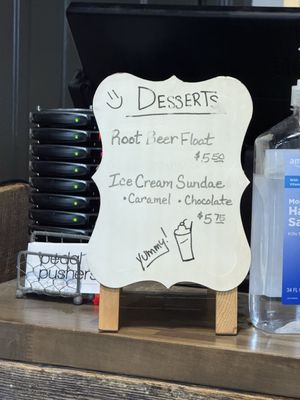 DESSERTS
Root Beer Float
$5.50
Ice Cream Sundae
• Caramel • Chocolate
$5.75
Yummy!
pedal
pushers